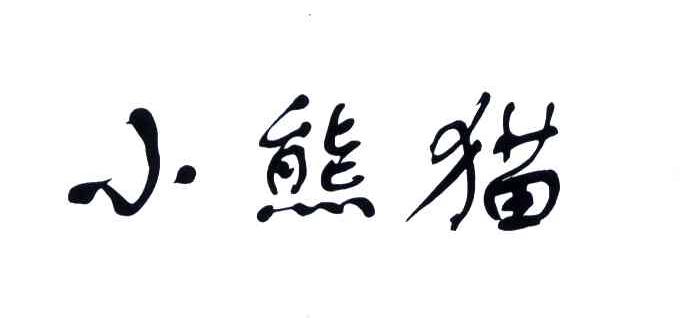 小熊猫